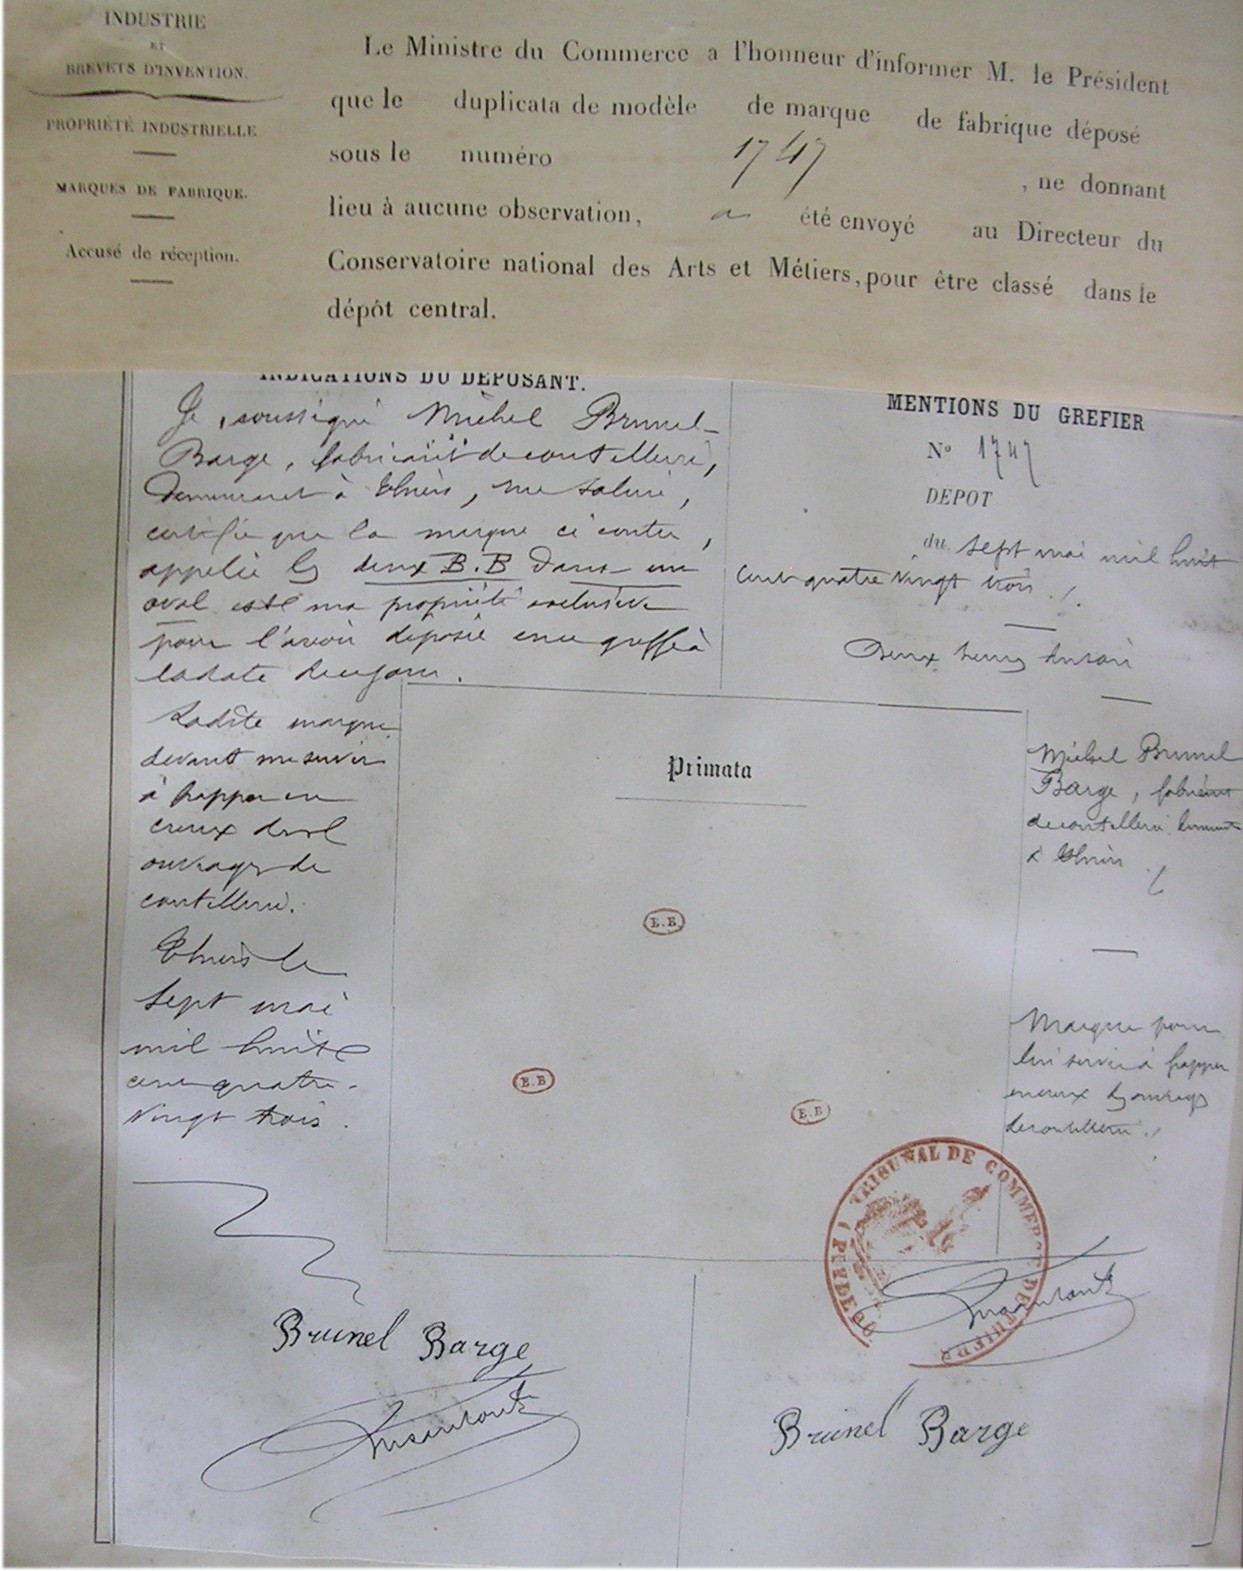 INDUSTRIE
ET
BREVETS D'INVENTION.
PROPRIÉTÉ INDUSTRIELLE
MARQUES DE FABRIQUE.
Accusé de réception.
Le Ministre du Commerce a l'honneur d'informer M. le Président
que le duplicata de modèle de marque de fabrique déposé
sous le numéro 1747 , ne donnant
lieu à aucune observation, a été envoyé au Directeur du
Conservatoire national des Arts et Métiers, pour être classé dans le
dépôt central.
INDICATIONS DU DÉPOSANT.
Je, soussigné Michel Brunel
Barge, fabricant de coutellerie,
demeurant à Thiers, rue
certifie que la marque ci contre,
appelée les deux B.B dans un
oval est ma propriété exclusive
pour l'avoir déposée en ce greffe à
la date de ce jour.
Ladite marque
devant me servir
à frapper en
creux
ouvrages de
coutellerie.
Thiers le
sept mai
mil huit
cent quatre-
vingt trois.
MENTIONS DU GREFIER
No 1747
DÉPOT
du sept mai mil huit
cent quatre vingt trois ./.
Deux heures
Michel Brunel
Barge, fabricant
de coutellerie demeurant
à Thiers
Marque pour
lui servir à frapper
en creux les ouvrages
de coutellerie ./
Primata
B.B
B.B
B.B
TRIBUNAL DE COMMERCE DE THIERS
(PUY DE DO
Brunel Barge
Brunel Barge